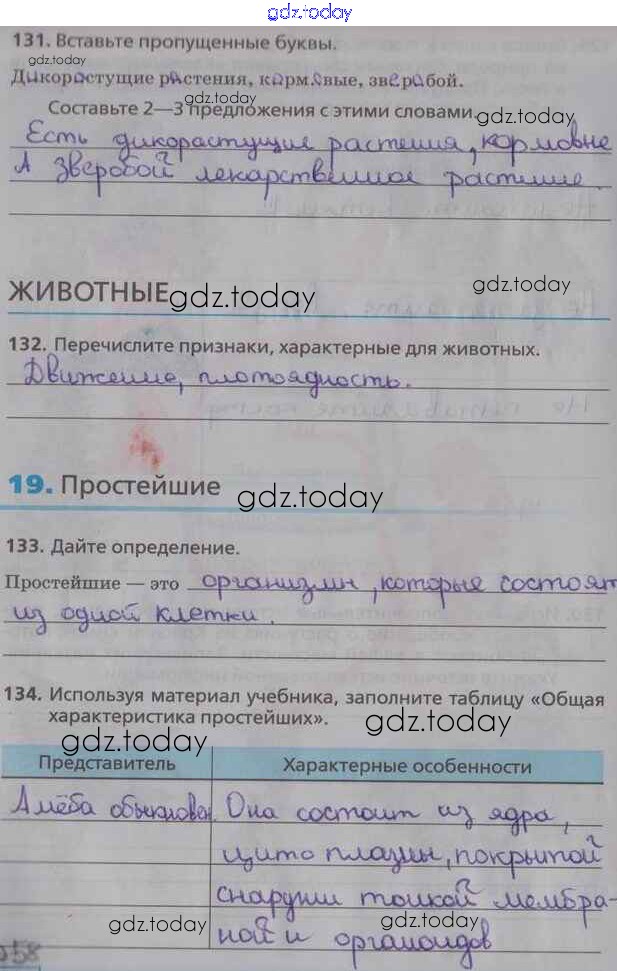 gdz.today
131. Вставьте пропущенные буквы.
gdz.today
Дикорастущие растения, кормовые, зверобой.
gdz.today
Составьте 2—3 предложения с этими словами.
gdz.today
Есть дикорастущие растения, кормовые
А зверобой лекарственное растение.
ЖИВОТНЫЕ
gdz.today
gdz.today
132. Перечислите признаки, характерные для животных.
Движение, плотоядность.
19. Простейшие
gdz.today
133. Дайте определение.
gdz.today
Простейшие — это организмы, которые состоят
из одной клетки.
134. Используя материал учебника, заполните таблицу «Общая
характеристика простейших».
gdz.today
gdz.today
Представитель Характерные особенности
Амёба обыкновен Она состоит из ядра,
цито плазмы, покрытой
снаружи тонкой мембра-
ной и органоидов
gdz.today
gdz.today
58